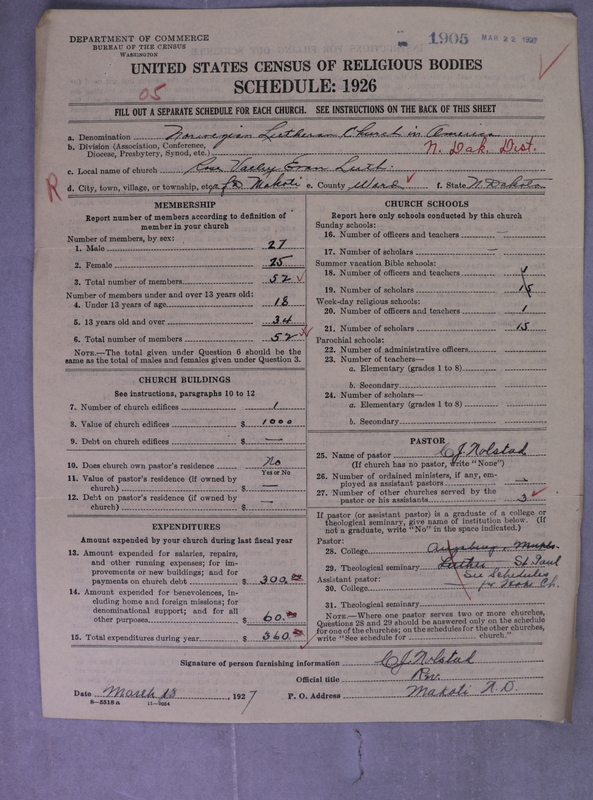 DEPARTMENT OF COMMERCE
BUREAU OF THE CENSUS
WASHINGTON
1905 MAR 22 1927
UNITED STATES CENSUS OF RELIGIOUS BODIES
SCHEDULE: 1926
05
FILL OUT A SEPARATE SCHEDULE FOR EACH CHURCH. SEE INSTRUCTIONS ON THE BACK OF THIS SHEET
a. Denomination Norwegian Lutheran Church in America
b. Division (Association, Conference, Diocese, Presbytery, Synod, etc.) N. Dak. Dist.
c. Local name of church Rose Valley Evan Luth.
R d. City, town, village, or township, etc. Makoti e. County Ward f. State N. Dakota
MEMBERSHIP
Report number of members according to definition of member in your church
Number of members, by sex:
1. Male 27
2. Female 25
3. Total number of members 52
Number of members under and over 13 years old:
4. Under 13 years of age 18
5. 13 years old and over 34
6. Total number of members 52
NOTE.—The total given under Question 6 should be the same as the total of males and females given under Question 3.
CHURCH BUILDINGS
See instructions, paragraphs 10 to 12
7. Number of church edifices 1
8. Value of church edifices $ 1000
9. Debt on church edifices $ —
10. Does church own pastor's residence No
Yes or No
11. Value of pastor's residence (if owned by church) $ —
12. Debt on pastor's residence (if owned by church) $ —
EXPENDITURES
Amount expended by your church during last fiscal year
13. Amount expended for salaries, repairs, and other running expenses; for improvements or new buildings; and for payments on church debt $ 300.00
14. Amount expended for benevolences, including home and foreign missions; for denominational support; and for all other purposes $ 60.00
15. Total expenditures during year $ 360.00
CHURCH SCHOOLS
Report here only schools conducted by this church
Sunday schools:
16. Number of officers and teachers —
17. Number of scholars —
Summer vacation Bible schools:
18. Number of officers and teachers
19. Number of scholars 15
Week-day religious schools:
20. Number of officers and teachers 1
21. Number of scholars 15
Parochial schools:
22. Number of administrative officers
23. Number of teachers—
a. Elementary (grades 1 to 8)
b. Secondary
24. Number of scholars—
a. Elementary (grades 1 to 8)
b. Secondary
PASTOR
25. Name of pastor C J Nolstad
(If church has no pastor, write "None")
26. Number of ordained ministers, if any, employed as assistant pastors
27. Number of other churches served by the pastor or his assistants 3
If pastor (or assistant pastor) is a graduate of a college or theological seminary, give name of institution below. (If not a graduate, write "No" in the space indicated.)
Pastor:
28. College Augsburg, Mnpls.
29. Theological seminary Luther St Paul
Assistant pastor: See Schedules
30. College for Ch.
31. Theological seminary
NOTE.—Where one pastor serves two or more churches, Questions 28 and 29 should be answered only on the schedule for one of the churches; on the schedules for the other churches, write "See schedule for church."
Signature of person furnishing information C J Nolstad
Official title Rev.
Date March 18, 1927 P. O. Address Makoti N. D.
8—5318 a 11—9554